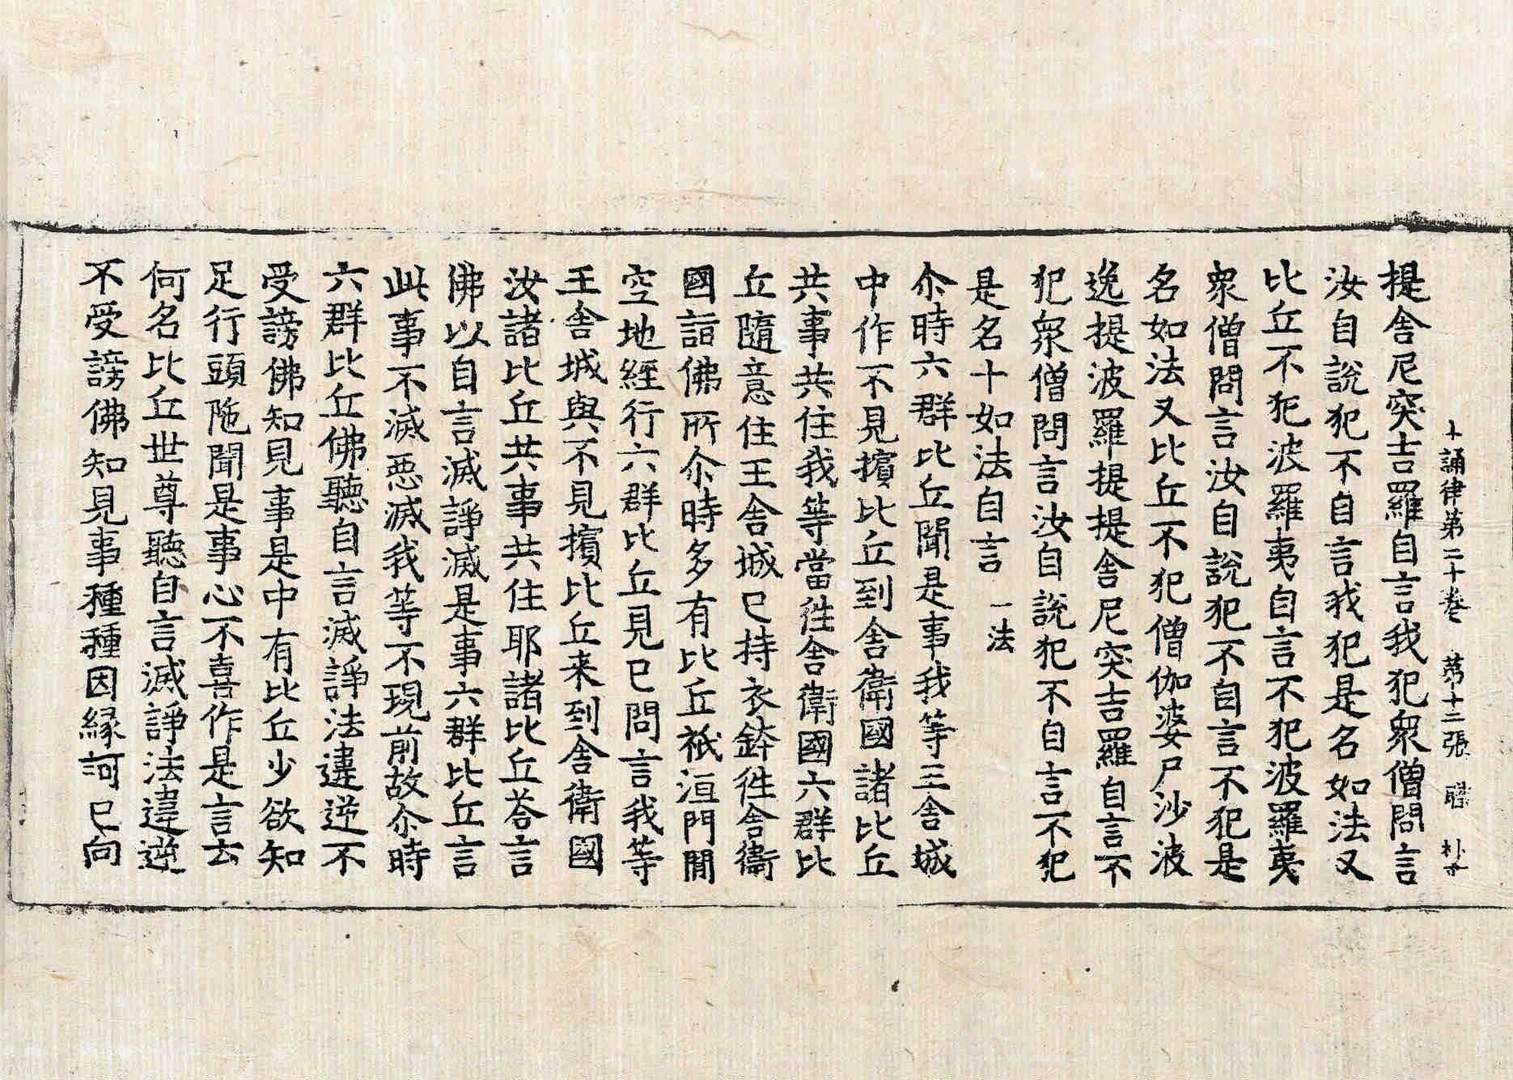 十誦律第二十卷　第十二張　職　朴
提舍尼突吉羅自言我犯衆僧問言
汝自說犯不自言我犯是名如法又
比丘不犯波羅夷自言不犯波羅夷
衆僧問言汝自說犯不自言不犯是
名如法又比丘不犯僧伽婆尸沙波
逸提波羅提提舍尼突吉羅自言不
犯衆僧問言汝自說犯不自言不犯
是名十如法自言　一法
尒時六群比丘聞是事我等王舍城
中作不見擯比丘到舍衛國諸比丘
共事共住我等當徃舍衛國六群比
丘隨意住王舍城已持衣鉢徃舍衛
國詣佛所尒時多有比丘祇洹門間
空地經行六群比丘見已問言我等
王舍城與不見擯比丘来到舍衛國
汝諸比丘共事共住耶諸比丘荅言
佛以自言滅諍滅是事六群比丘言
此事不滅惡滅我等不現前故尒時
六群比丘佛聽自言滅諍法違逆不
受謗佛知見事是中有比丘少欲知
足行頭陁聞是事心不喜作是言云
何名比丘世尊聽自言滅諍法違逆
不受謗佛知見事種種因緣訶已向